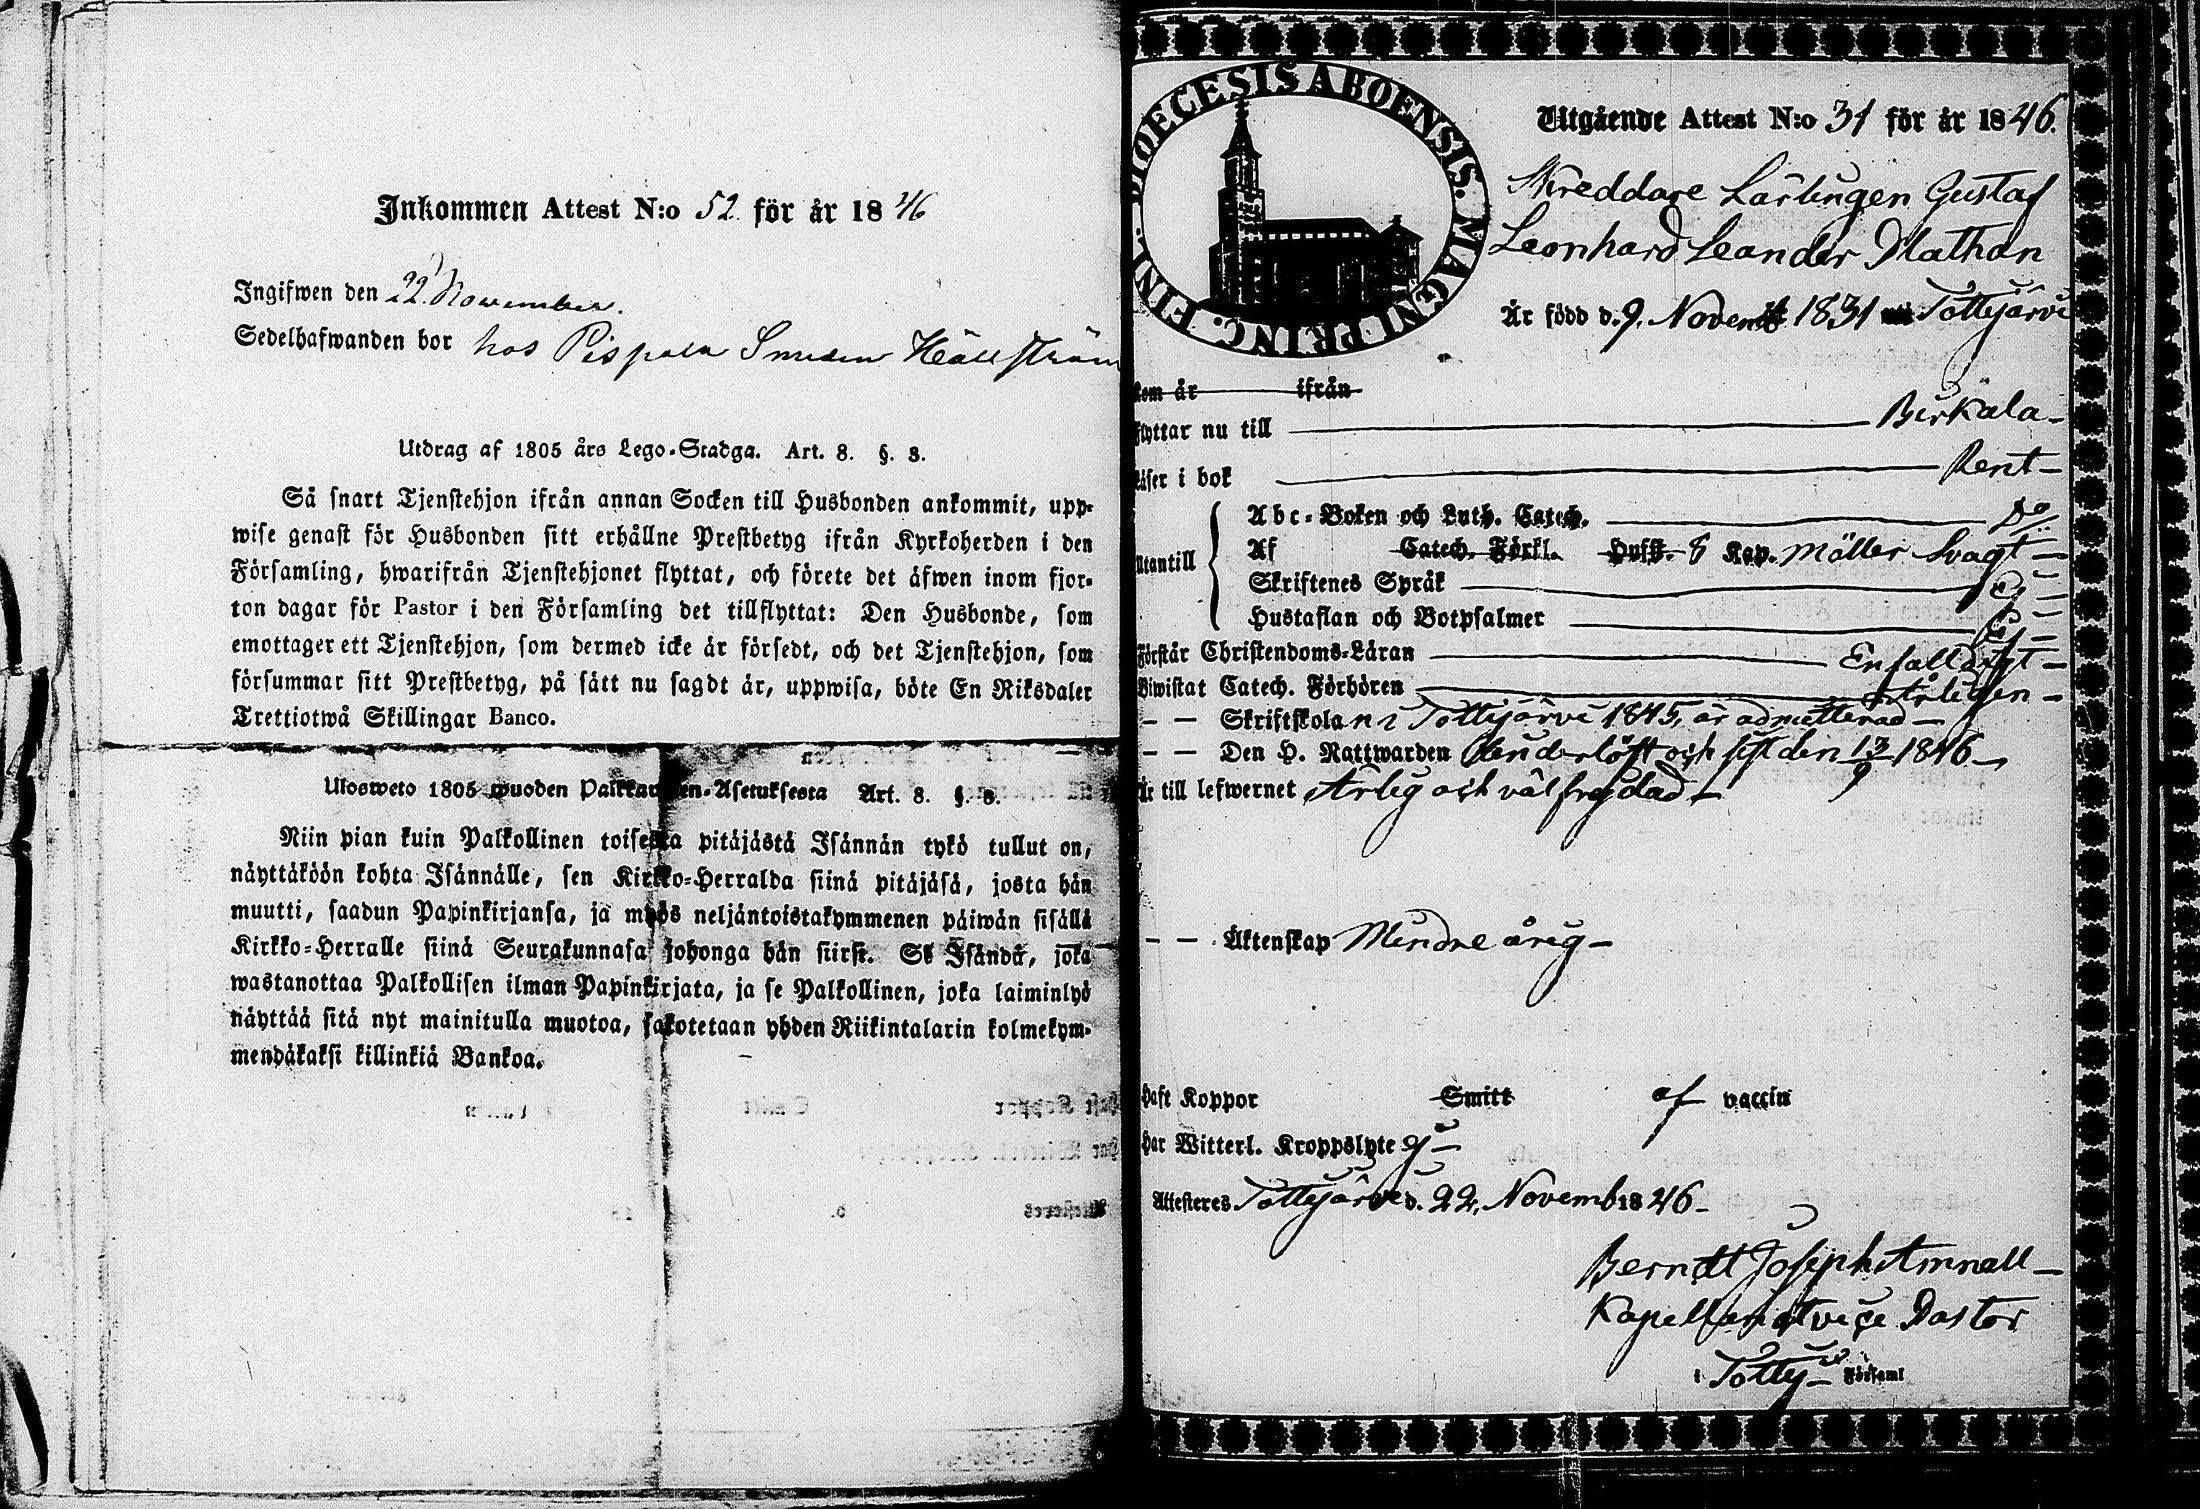 Inkommen Attest N:o 52 för år 1846
Ingifwen den 22 November.
Sedelhafwanden bor hos Pispala Smeden Hällström
Utdrag af 1805 års Lego-Stadga. Art. 8. §. 3.
Så snart Tjenstehjon ifrån annan Socken till Husbonden ankommit, upp-
wise genast för Husbonden sitt erhållne Prestbetyg ifrån Kyrkoherden i den
Församling, hwarifrån Tjenstehjonet flyttat, och förete det äfwen inom fjor-
ton dagar för Pastor i den Församling det tillflyttat: Den Husbonde, som
emottager ett Tjenstehjon, som dermed icke är försedt, och det Tjenstehjon, som
försummar sitt Prestbetyg, på sätt nu sagdt är, uppwisa, böte En Riksdaler
Trettiotwå Skillingar Banco.
Ulosweto 1805 wuoden Palkkau en-Asetuksesta Art. 8. §. 3.
Niin pian kuin Palkollinen toisesta pitäjästä Isännän tykö tullut on,
näyttäköön kohta Isännälle, sen Kirkko-Herralda siinä pitäjäsä, josta hän
muutti, saadun Papinkirjansa, ja myös neljäntoistakymmenen päiwän sisällä
Kirkko-Herralle siinä Seurakunnasa johonga hän siirsi. Se Isändä, joka
wastanottaa Palkollisen ilman Papinkirjata, ja se Palkollinen, joka laiminlyö
näyttää sitä nyt mainitulla muotoa, sakotetaan yhden Riikintalarin kolmekym-
mendäkaksi killinkiä Bankoa.
DIOECESIS ABOENSIS. MAGNI PRINC. FINL.
Utgående Attest N:o 31 för år 1846.
Skreddare Lärlingen Gustaf
Leonhard Leander Mathan
Är född d. 9. Novemb 1831 i Tottijärvi
kom år ifrån
flyttar nu till Birkala
läser i bok Rent
Utantill
Abc-Boken och Luth. Catech. Do
Af Catech. Förkl. Hufst. 8 Kap. Möller Svagt
Skriftenes Språk Ej
Hustaflan och Botpsalmer Ej
Förstår Christendoms-Läran Enfalldigt
Biwistat Catech. Förhören Årligen
Skriftskolan i Tottijärvi 1845, är admitterad
Den H. Nattwarden Oanderlöst och sist den 13/9 1846
Är till lefwernet Ärlig och välfrejdad
Äktenskap Minderårig
Haft Koppor Smitt af vaccin
Har Witterl. Kroppslyte Ej
Attesteres Tottijärvi d. 22, Novemb 1846
Berndt Joseph Amnell
Kapellan Pastor
i Tottij Församl